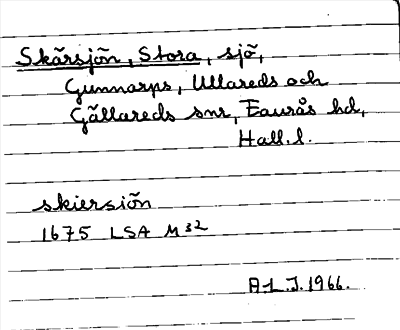 Skärsjön, Stora, sjö,
Gunnarps, Ullareds och
Gällareds snr, Faurås hd,
Hall. l.
skiersiön
1675 LSA M 32
A.L.J. 1966.